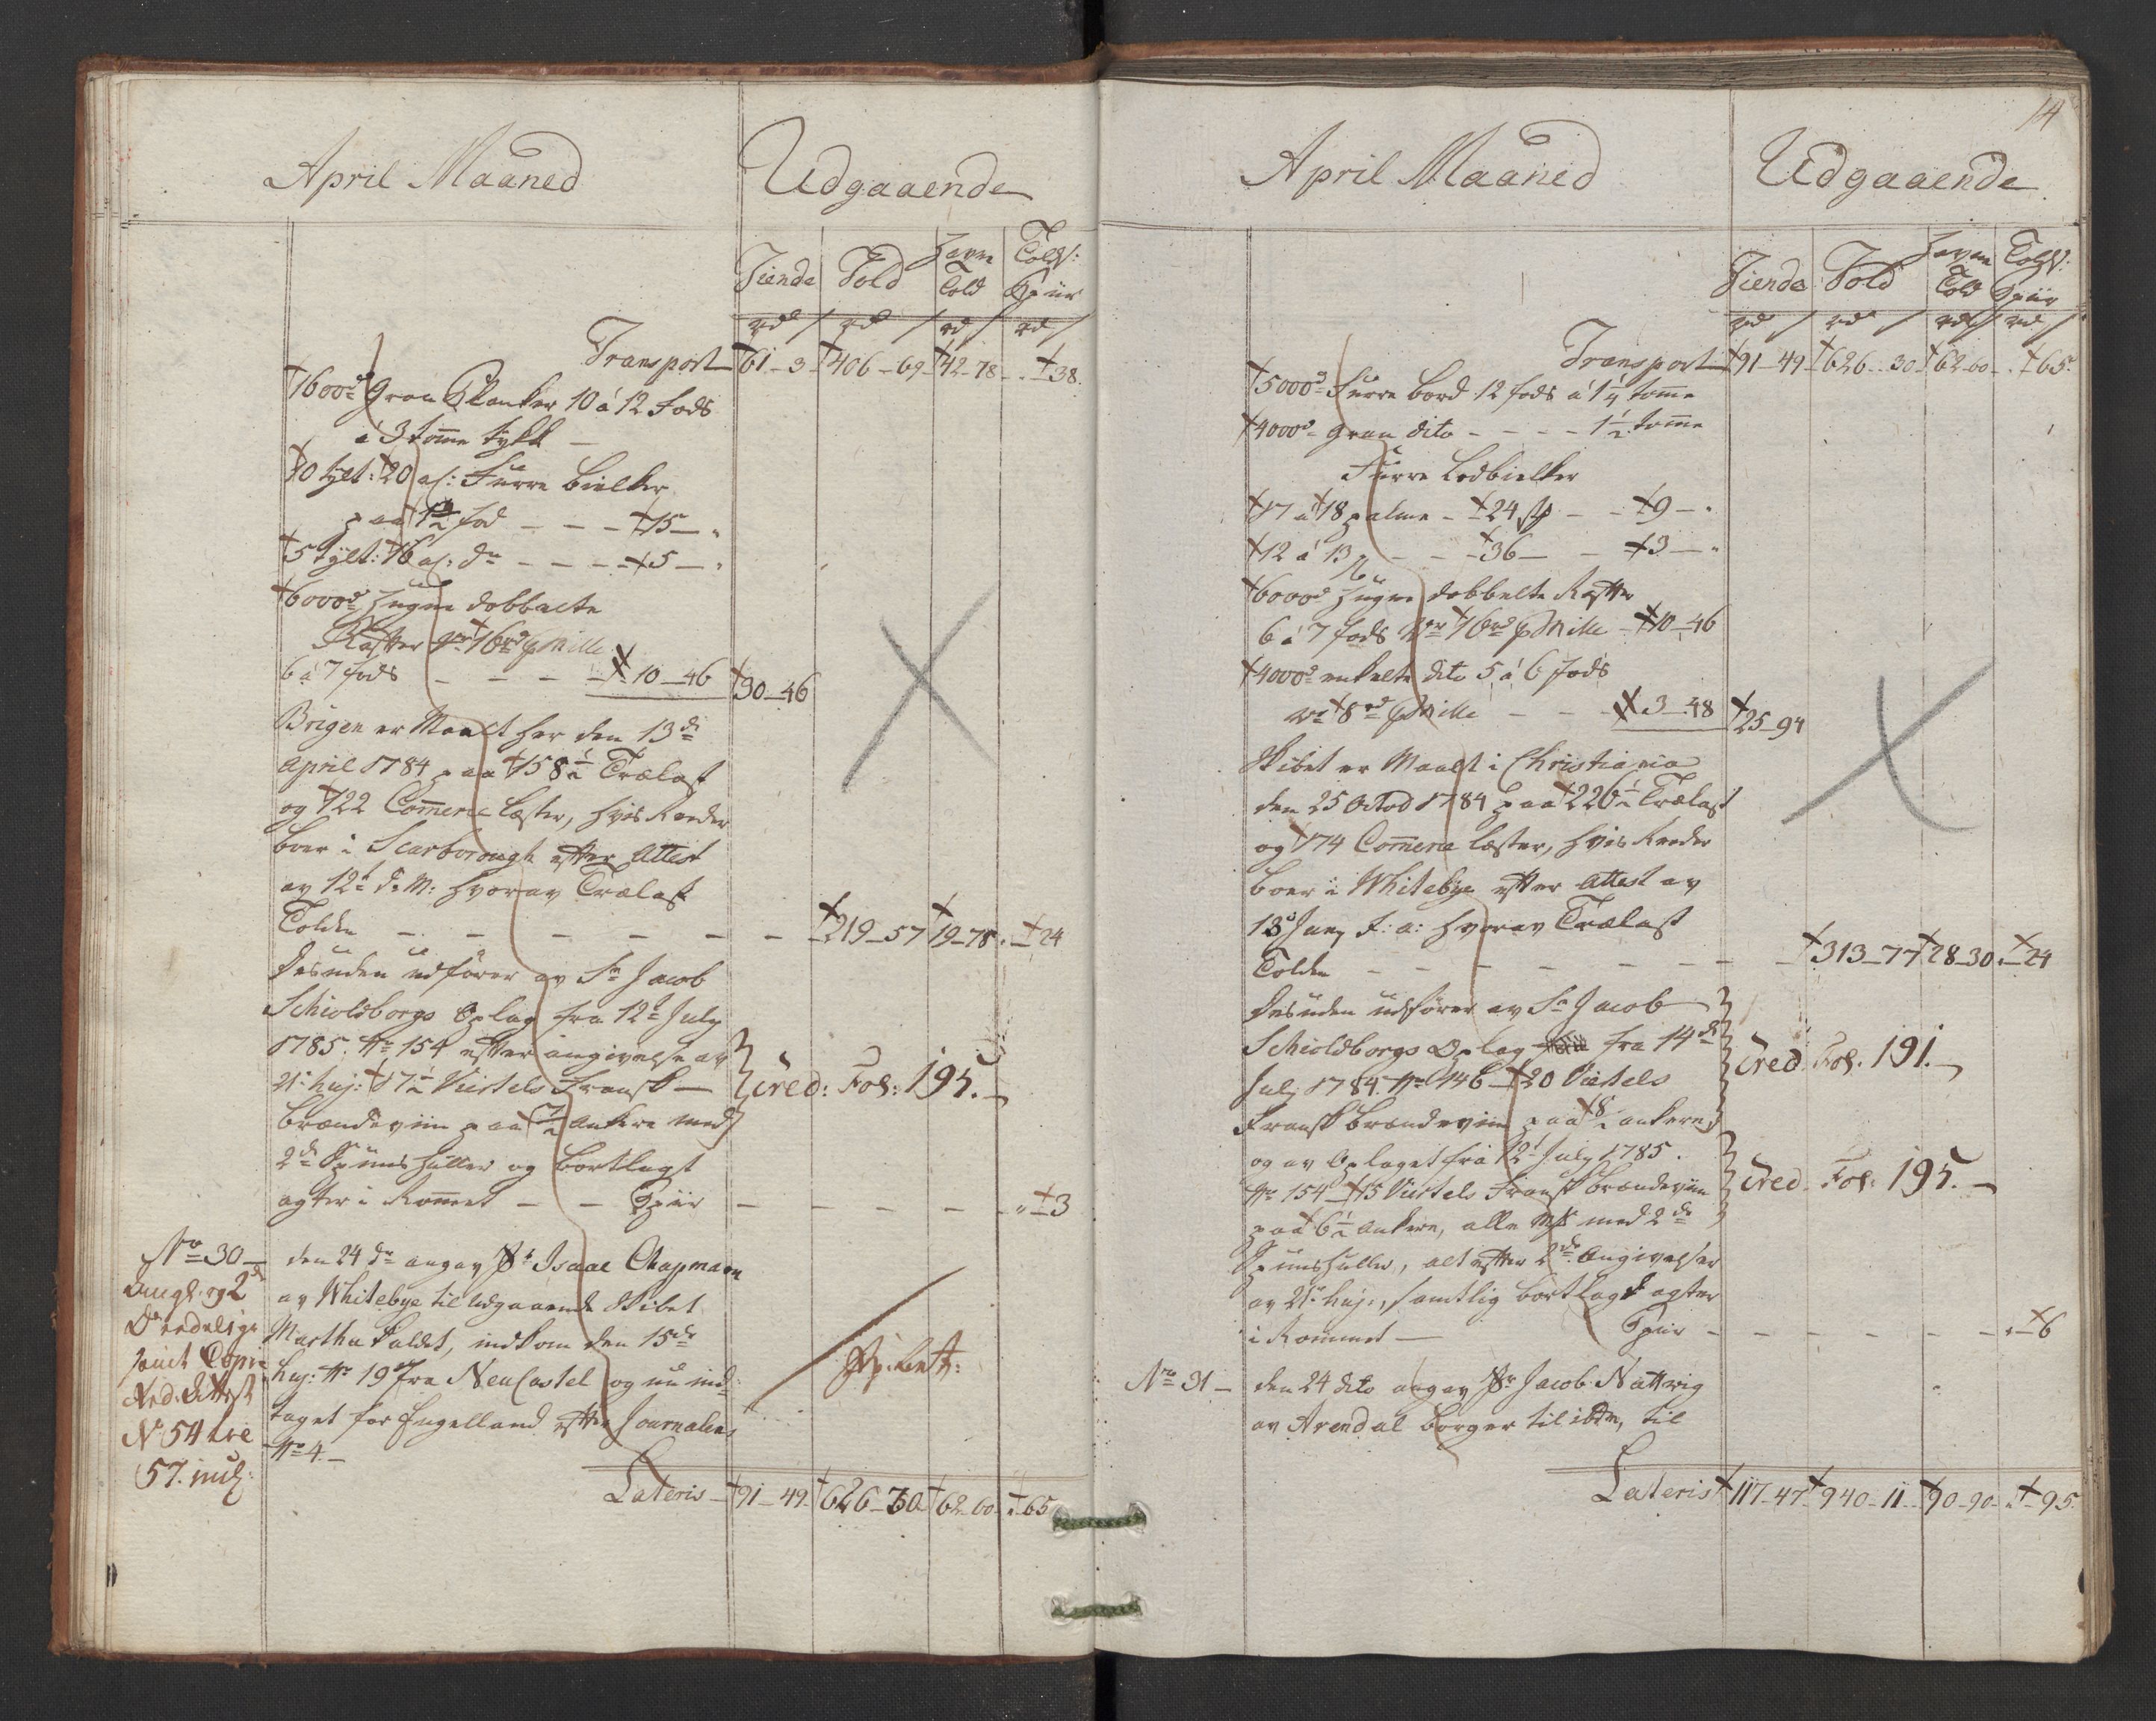 April Maaned
Udgaaende
Tiende Told Havne Told Toldb: Spiir
rd rd rd rd
Transport 61-3 406-69 42-78 -38.
1600 Gran Planker 10 á 12 Fods
á 3 tomme tykk
10 tylt: 20 al: Furre Bielker
paa 1 1/2 fod - - - 15 -
5 tylt: 16 al: do - - - 5 -
6000 Hugne dobbelte
Røster 16 pMille
6 á 7 fods - - - 10-46 30-46
Brigen er Maalt her den 13de
April 1784 paa 158 1/2 Trælast
og 122 Commerce læster, hvis Reeder
boer i Scarborough efter Attest
av 12t d: M: hvorav Trælast
Tolden - - - - 219-57 19-78 - 24
Desuden udfører av Sr Jacob
Schioldborgs Oplag fra 12t July
1785. No 154 efter angivelse av
21t huj: 17 1/2 Viertels Fransk
Brændeviin paa ankere med
2de Spunshuller og bortlagt
agter i Rommet - - Spiir - - - - 3
Cred: Fol: 195.
No 30
den 24 do angav Sr Isaac Chapmann
av Whitebye til Udgaaende Skibet
Martha kaldet, indkom den 15de
huj: No 19 fra NeuCastel og nu ind-
taget for Engelland efter Journalens
No 4.
Angl. og 2de
Nd. Attest
No 54 til
57. incl:
Lateris 91-49 626-30 62-60 -65
14
April Maaned
Udgaaende
Tiende Told Havne Told Toldb: Spiir
rd rd rd rd
Transport 91-49 626-30 62-60 - 65
5000 Furre bord 12 fods á 1 1/4 tomme
4000 gran dito - - - - 1 1/2 tomme
Furre Lodbielker
17 á 18 palme - 24 st - - 9 -
12 á 13 p - - - 36 - - 3 -
6000 Hugne dobbelte Røster
6 á 7 fods 16 pMille - 10-46
4000 enkelte dito 5 á 6 fods
8 pMille - - 3-48 25-94
Skibet er Maalt i Christiania
den 25 Octob 1784 paa 226 1/2 Trælast
og 174 Commerce læster, hvis Reeder
boer i Whitebye efter Attest av
13 Jan d: a: hvorav Trælast
Tolden - - - - - - 313-77 28-30 - 24
Desuden udfører av Sr Jacob
Schioldborgs Oplag fra 14de
July 1784. No 146 - 20 Viertels
Fransk brændeviin paa 8 ankere,
og av Oplaget fra 12t July 1785.
No 154 - 15 Viertels Fransk brændeviin
paa 6 1/2 ankere, alle med 2de
Spunshuller, alt efter 2de Angivelser
av 21t huj:, samtlig bortlagt agter
i Rommet - Spiir - - - - - - 6
Cred. Fol. 191.
Cred. Fol. 195.
No 31 - den 24 dito angav Sr Jacob Nattvig
av Arendal borger til ibdm, til
Lateris 117-47 940-11 90-90 - 95